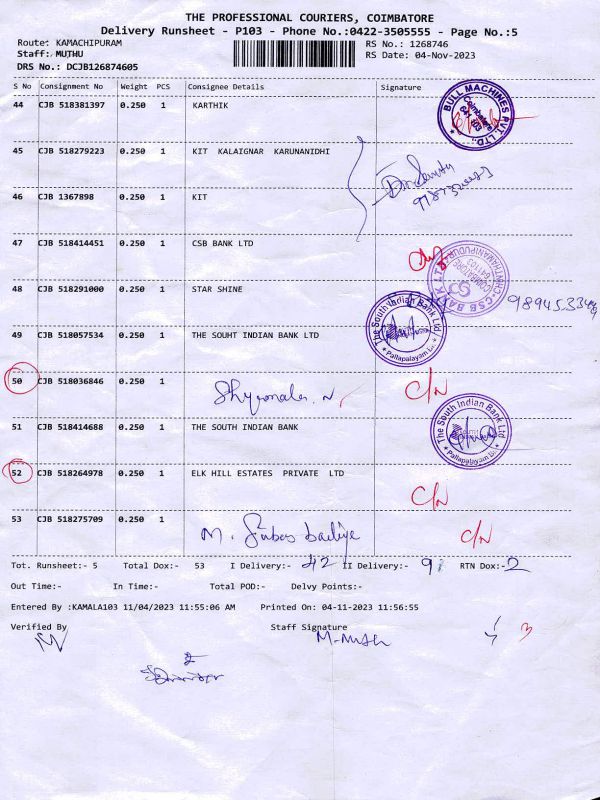 THE PROFESSIONAL COURIERS, COIMBATORE
Delivery Runsheet - P103 - Phone No.:0422-3505555 - Page No.:5
Route: KAMACHIPURAM RS No.: 1268746
Staff: MUTHU RS Date: 04-Nov-2023
DRS No.: DCJB126874605
S No Consignment No Weight PCS Consignee Details Signature
44 CJB 518381397 0.250 1 KARTHIK
BULL MACHINES PVT. LTD. Coimbatore 641 103
45 CJB 518279223 0.250 1 KIT KALAIGNAR KARUNANIDHI
46 CJB 1367898 0.250 1 KIT
47 CJB 518414451 0.250 1 CSB BANK LTD
CSB BANK LTD COIMBATORE 641103
48 CJB 518291000 0.250 1 STAR SHINE
The South Indian Bank Ltd. Pallapalayam
49 CJB 518057534 0.250 1 THE SOUHT INDIAN BANK LTD
50 CJB 518036846 0.250 1 C/N
51 CJB 518414688 0.250 1 THE SOUTH INDIAN BANK
The South Indian Bank Ltd. Pallapalayam
52 CJB 518264978 0.250 1 ELK HILL ESTATES PRIVATE LTD
C/N
53 CJB 518275709 0.250 1 M. C/N
Tot. Runsheet:- 5 Total Dox:- 53 I Delivery:- 42 II Delivery:- 9 RTN Dox:- 2
Out Time:- In Time:- Total POD:- Delvy Points:-
Entered By :KAMALA103 11/04/2023 11:55:06 AM Printed On: 04-11-2023 11:56:55
Verified By Staff Signature
3